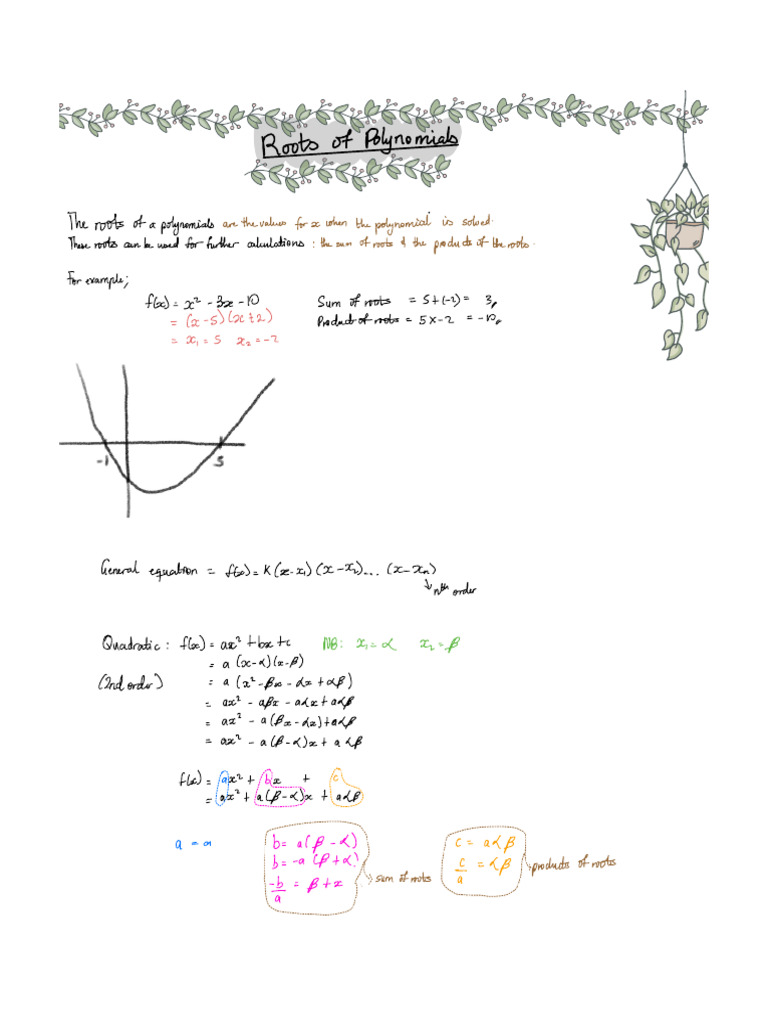 Roots of Polynomials
The roots of a polynomials are the values for x when the polynomial is solved.
These roots can be used for further calculations : the sum of roots & the products of the roots.
For example;
f(x) = x² - 3x - 10
= (x - 5)(x + 2)
= x₁ = 5 x₂ = -2
Sum of roots = 5 + (-2) = 3
Product of roots = 5 x -2 = -10
-1 5
General equation = f(x) = K(x - x₁)(x - x₂)... (x - xₙ)
↳ nth order
Quadratic : f(x) = ax² + bx + c NB: x₁ = α x₂ = β
= a (x - α)(x - β)
(2nd order) = a (x² - βx - αx + αβ)
= ax² - aβx - aαx + aαβ
= ax² - a(βx - αx) + aαβ
= ax² - a(β - α)x + aαβ
f(x) = ax² + bx + c
= ax² + a(β - α)x + aαβ
a = a
b = a(β - α)
b = -a(β + α)
-b/a = β + x
sum of roots
c = aαβ
c/a = αβ
products of roots